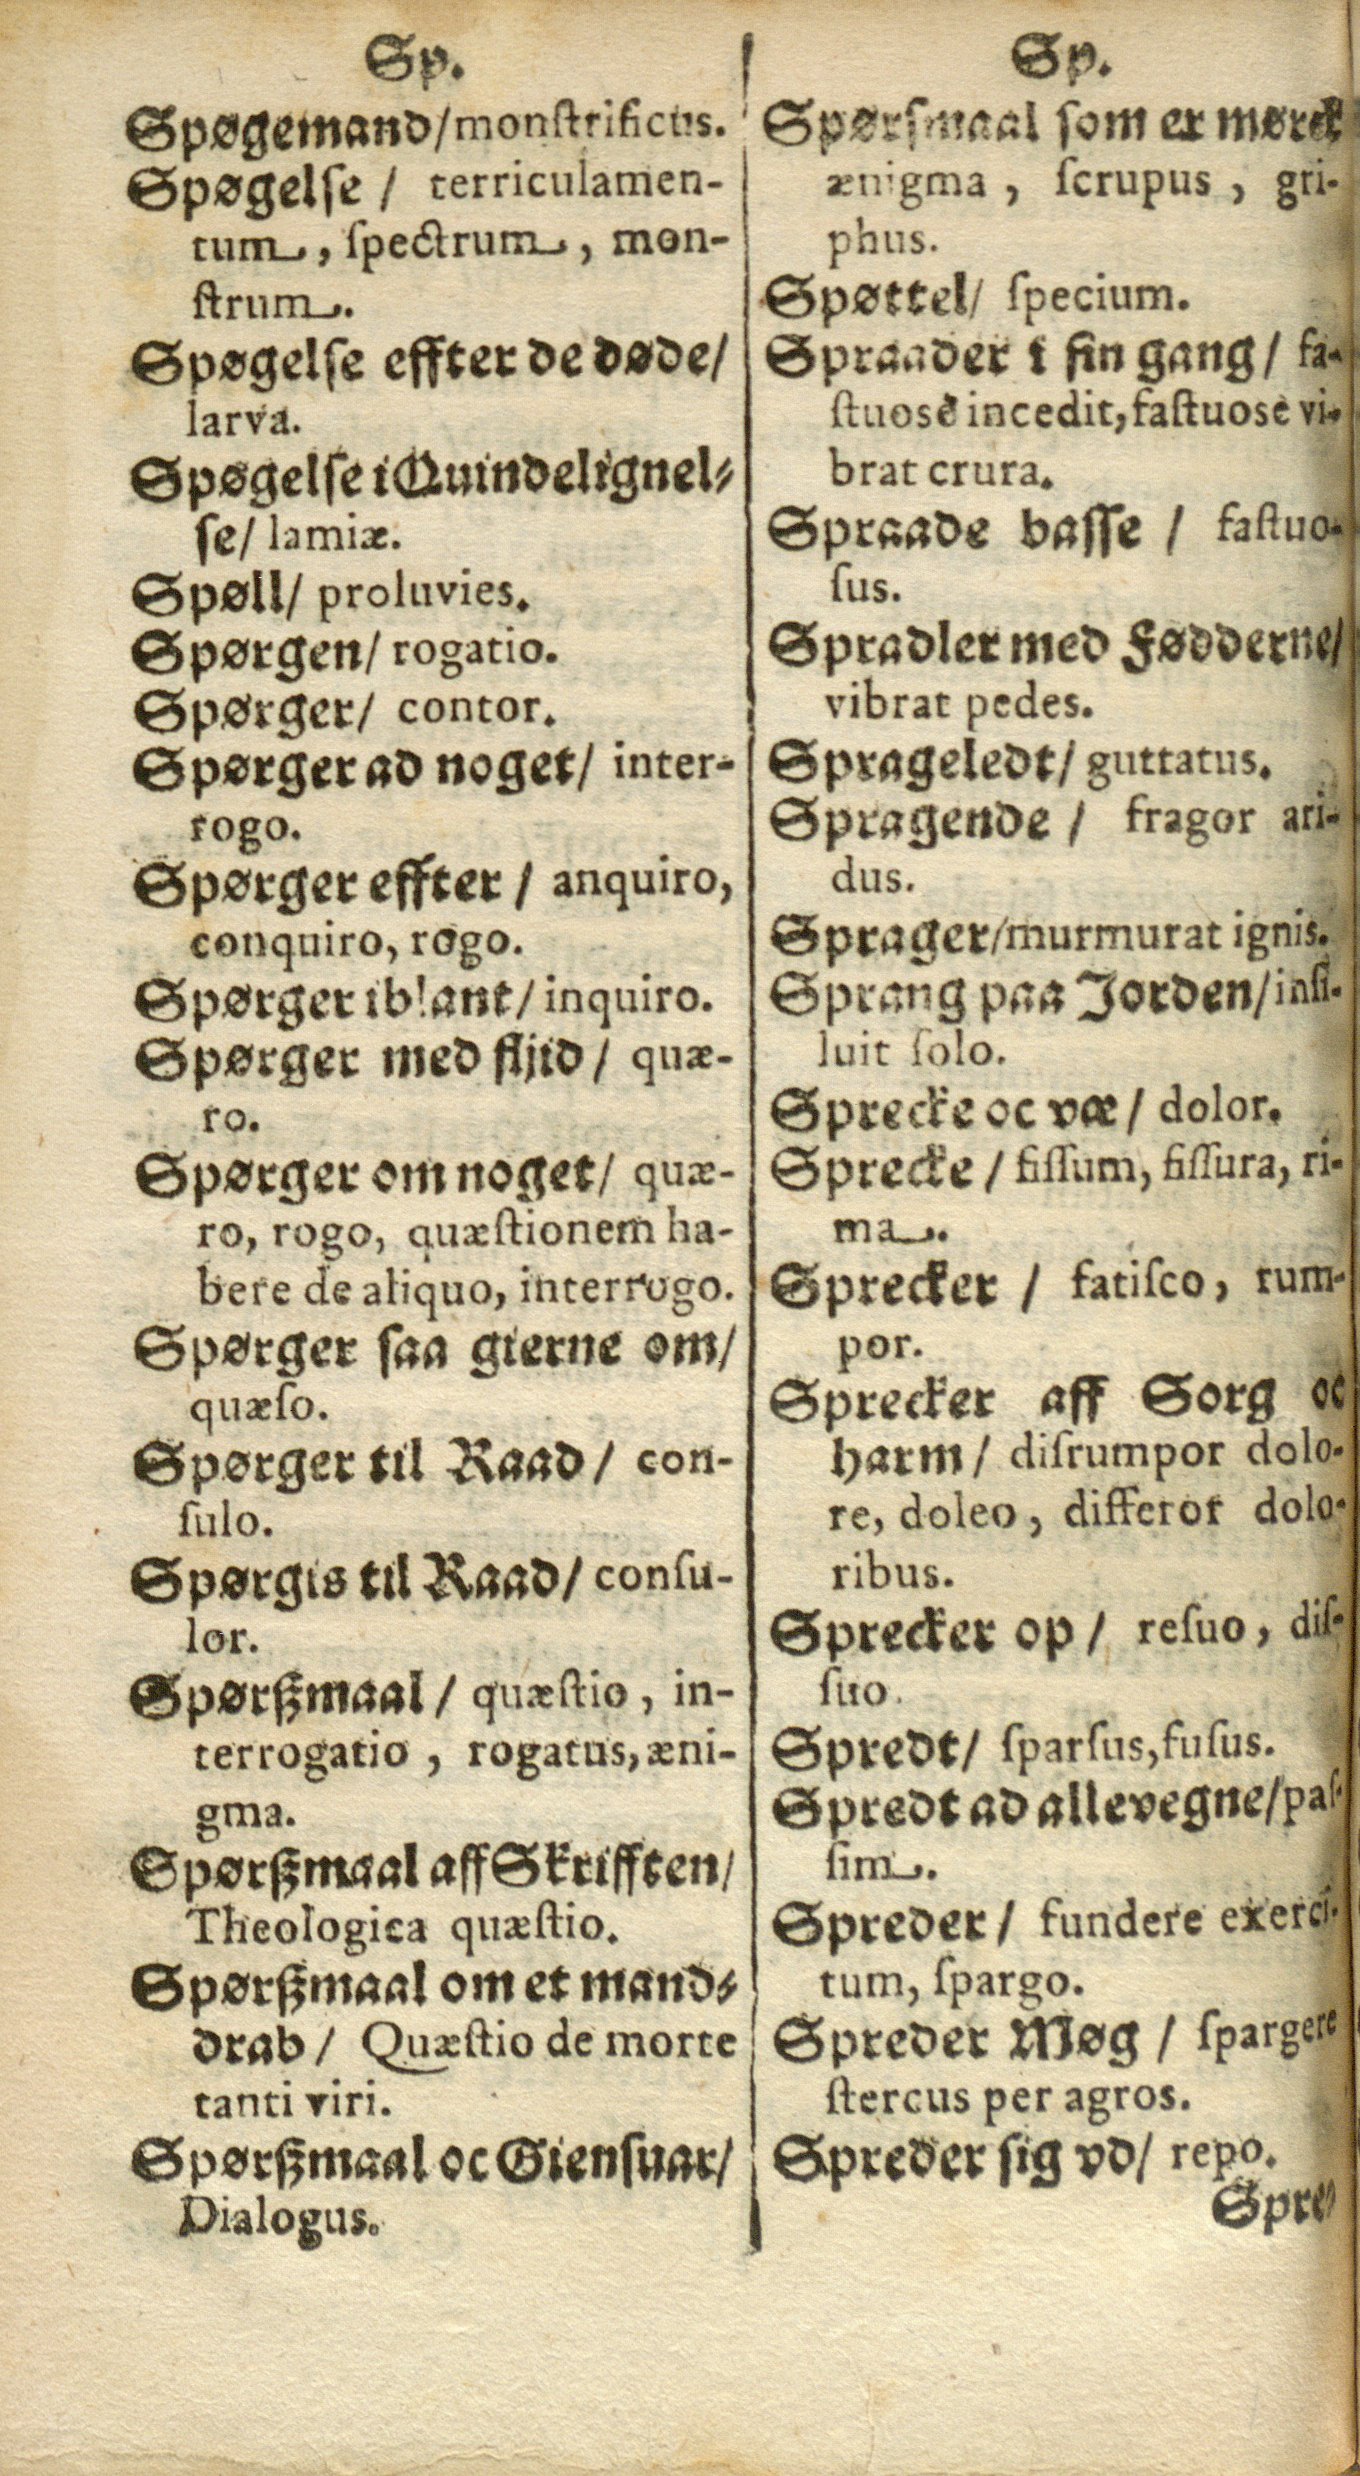 Sp.
Spøgemand/monſtrificus.
Spøgelſe / terriculamen-
tum, ſpectrum, mon-
ſtrum.
Spøgelſe effter de døde/
larva.
Spøgelſe i Quindelignel-
ſe/ lamiæ.
Spøll/ proluvies.
Spørgen/ rogatio.
Spørger/ contor.
Spørger ad noget/ inter-
rogo.
Spørger effter / anquiro,
conquiro, rogo.
Spørger iblant/ inquiro.
Spørger med flijd / quæ-
ro.
Spørger om noget/ quæ-
ro, rogo, quæſtionem ha-
bere de aliquo, interrogo.
Spørger ſaa gierne om/
quæſo.
Spørger til Raad / con-
ſulo.
Spørgis til Raad/ conſu-
lor.
Spørßmaal / quæſtio, in-
terrogatio, rogatus, æni-
gma.
Spørßmaal aff Skrifften/
Theologica quæſtio.
Spørßmaal om et mand-
drab / Quæſtio de morte
tanti viri.
Spørßmaal oc Gienſuar/
Dialogus.
Sp.
Spørſmaal ſom er mørck
ænigma, ſcrupus, gri-
phus.
Spøttel/ ſpecium.
Spraader i ſin gang / fa-
ſtuosè incedit, faſtuosè vi-
brat crura.
Spraade baſſe / faſtuo-
ſus.
Spradler med Fødderne/
vibrat pedes.
Sprageledt/ guttatus.
Spragende / fragor ari-
dus.
Sprager/murmurat ignis.
Sprang paa Jorden/inſi-
luit ſolo.
Sprecke oc væ / dolor.
Sprecke / fiſſum, fiſſura, ri-
ma.
Sprecker / fatiſco, rum-
por.
Sprecker aff Sorg oc
harm / diſrumpor dolo-
re, doleo, differor dolo-
ribus.
Sprecker op / reſuo, diſ-
ſuo.
Spredt/ ſparſus, fuſus.
Spredt ad allevegne/paſ-
ſim.
Spreder / fundere exerci-
tum, ſpargo.
Spreder Møg / ſpargere
ſtercus per agros.
Spreder ſig vd/ repo.
Spre-